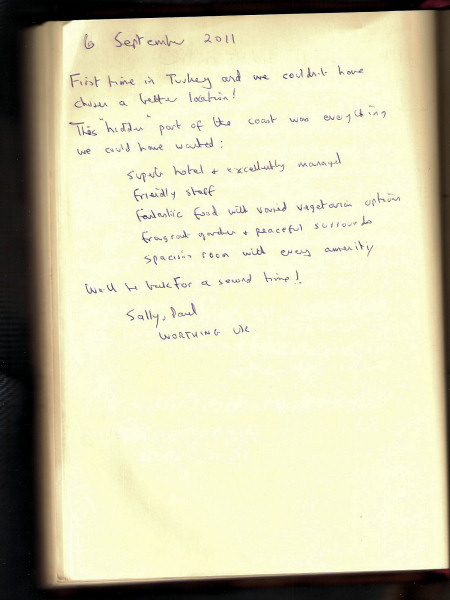 6 September 2011
First time in Turkey and we couldn't have
chosen a better location!
This "hidden" part of the coast was everything
we could have wanted:
superb hotel + excellently managed
friendly staff
fantastic food with varied vegetarian options
fragrant garden + peaceful surrounds
spacious room with every amenity
We'll be back for a second time!
Sally, Paul
WORTHING UK.